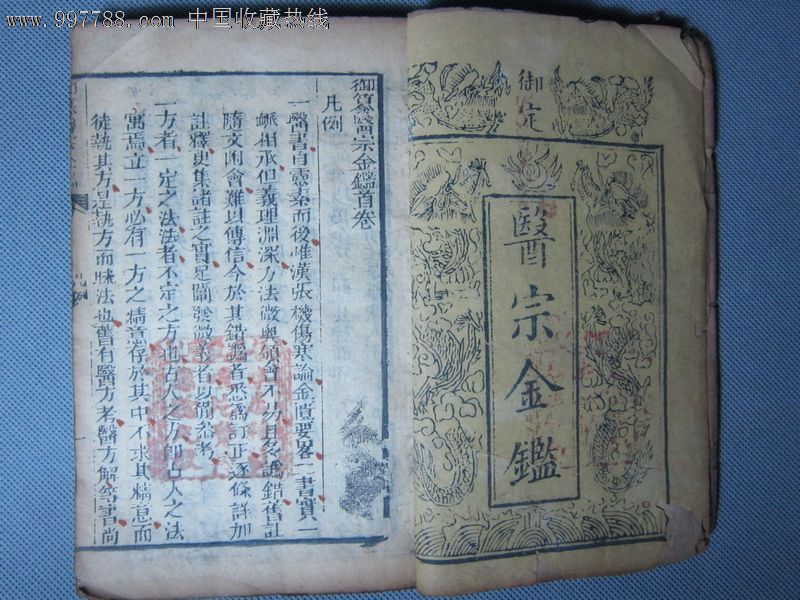 www.997788.com 中国收藏热线
御定
醫宗金鑑
御纂醫宗金鑑首卷
凡例
一醫書自靈素而後惟漢張機傷寒論金匱要畧二書實一
脈相承但義理淵深方法微奧領會不易且多訛錯舊註
隨文附會難以傳信今於其錯譌者悉為訂正逐條詳加
註釋更集諸註之實足闡發微義者以備叅考
一方者一定之法法者不定之方也古人之方即古人之法
寓焉立一方必有一方之精意存於其中不求其精意而
徒執其方是執方而昧法也舊有醫方考醫方解等書尚
凡例